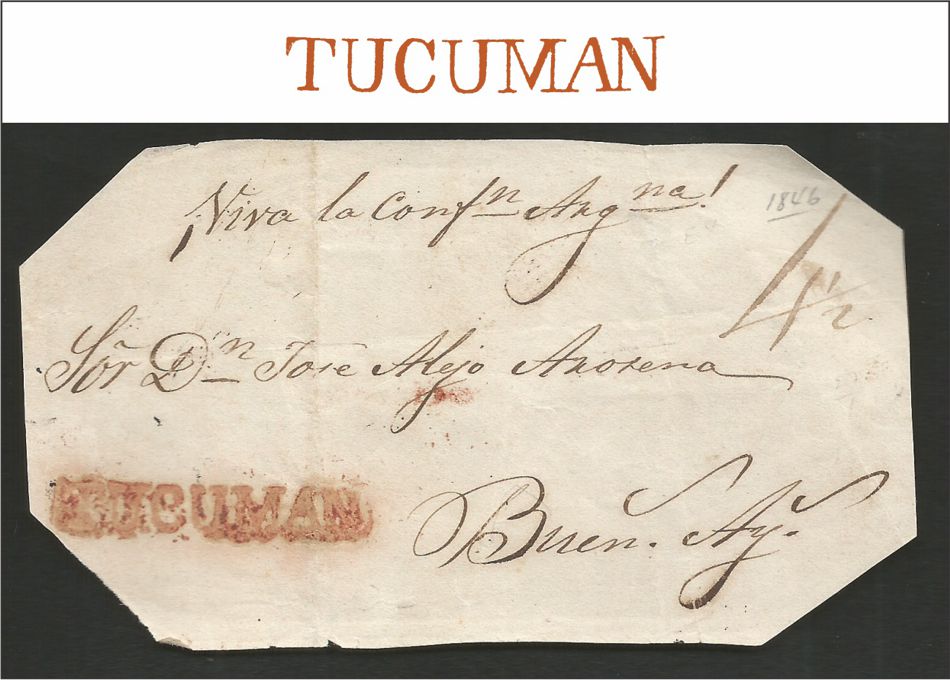 TUCUMAN
¡Viva la Confn Argna!
1846
1/2
Sõr Dn José Alejo Arosena
TUCUMAN
Buens. Ays.